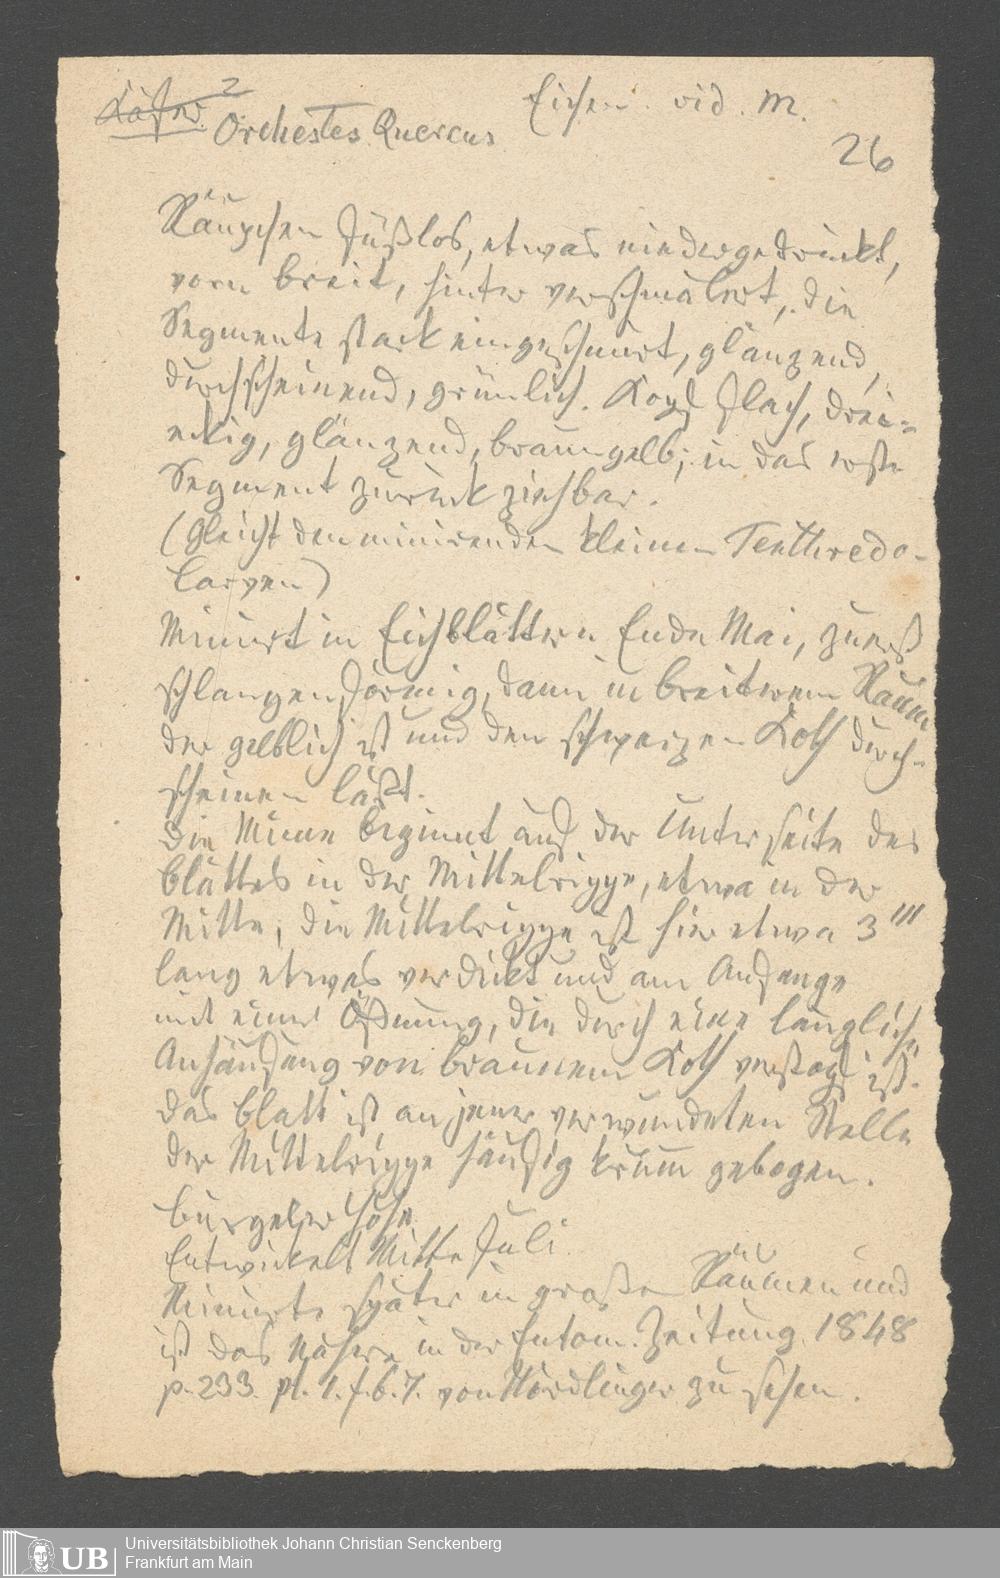 Käfer 2
Orchestes Quercus
Eichen. vid. m.
26
Räupchen fußlos, etwas niedergedrückt,
vorn breit, hinten verschmälert, die
Segmente stark eingeschnürt, glänzend,
durchscheinend, grünlich. Kopf flach, drei-
eckig, glänzend, braungelb; in das erste
Segment zurückziehbar.
(Gleicht den minirenden kleinen Tenthredo-
larven)
Minirt in Eichblättern Ende Mai, zuerst
schlangenförmig, dann in breiterem Raum
der gelblich ist und den schwarzen Koth durch-
scheinen läßt.
Die Mine beginnt auf der Unterseite des
Blattes in der Mittelrippe, etwa in der
Mitte, die Mittelrippe ist hier etwa 3'''
lang etwas verdickt und am Anfange
mit einer Öffnung, die durch eine längliche
Anhäufung von braunem Koth verstopft ist.
Das Blatt ist an jener verwundeten Stelle
der Mittelrippe häufig krumm gebogen.
Bürgeler Höhe
Entwickelt Mitte Juli.
Minirte später in großen Räumen und
ist das Nähere in der Entom. Zeitung 1848
p. 233. pl. 1. f. 6. 7. von Nördlinger zu sehen.
UB
Universitätsbibliothek Johann Christian Senckenberg
Frankfurt am Main